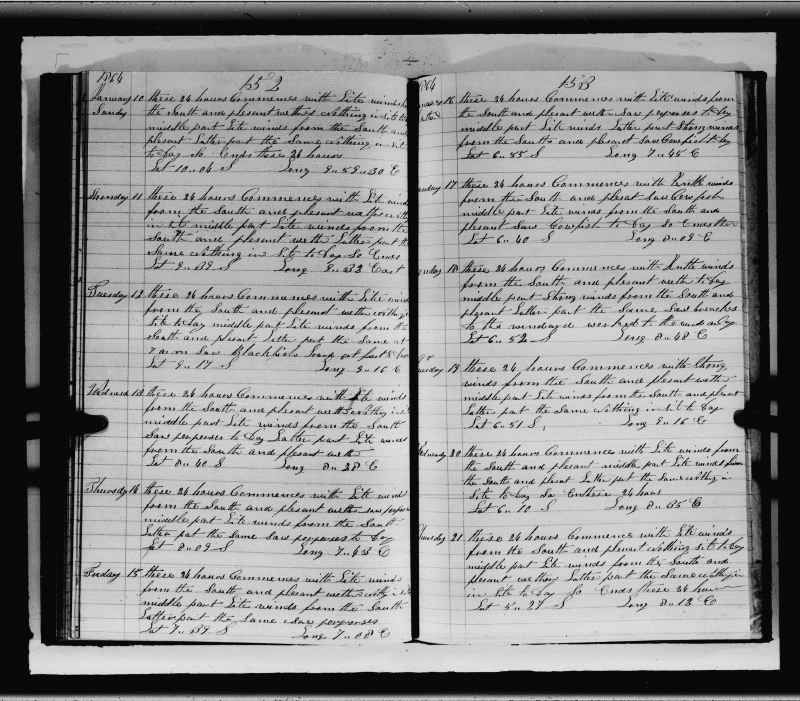 1864
152
January 10 these 24 hours Commences with Lite winds from
Sunday the South and plesant wether Nothing in site
middle part Lite winds from the South and
plesant Latter part the Same Nothing in sit
to Day So Ends these 24 hours
Lat 10..04 S Long 9..59..30 E
Munday 11 these 24 hours Commences with Lite winds
from the South and plesant wether
in sit middle part Lite winds from the
South and plesant weth Latter part the
Same Nothing in Sit to Day So Ends
Lat 9..39 S Long 9..33 East
Tuesday 12 these 24 hours Commences with Lite winds
from the South and plesant weth
Site to Day middle part Lite winds from the
South and plesant Latter part the Same at
7 am Saw Blackfish
Lat 9..17 S Long 9..16 E
Wednsd 13 these 24 hours Commences with Lite winds
from the South and plesant weth Nothing in sit
middle part Lite winds from the South
Saw perporses to Day Latter part Lite winds
from the South and plesant weth
Lat 8..40 S Long 8..28 E
Thursday 14 these 24 hours Commences with Lite winds
from the South and plesant weth Saw perpors
middle part Lite winds from the South
Latter part the Same Saw perporses to Day
Lat 8..09 S Long 7..43 E
Friday 15 these 24 hours Commences with Lite winds
from the South and plesant weth
middle part Lite winds from the South
Latter part the Same Saw perporses
Lat 7..39 S Long 7..08 E
1864
153
16 these 24 hours Commences with Lite winds from
the South and plesant weth Saw perporses to Day
middle part Lite winds Latter part Strong winds
from the South and plesant Saw Cowfish to Day
Lat 6..55 S Long 7..45 E
17 these 24 hours Commences with winds
from the South and plesant Saw Cowfish
middle part Lite winds from the South and
plesant Saw Cowfish to Day So Ends
Lat 6..40 S Long 8..09 E
18 these 24 hours Commences with winds
from the South and plesant weth to Day
middle part Strong winds from the South and
plesant Latter part the Same Saw
to the windward worked to the
Lat 6..52 S Long 8..48 E
19 these 24 hours Commences with Strong
winds from the South and plesant weth
middle part Lite winds from the South and plesant
Latter part the Same Nothing in Sit to Day
Lat 6..51 S Long 9..16 E
Wednsday 20 these 24 hours Commences with Lite winds from
the South and plesant middle part Lite winds from
the South and plesant Latter part the Same Nothing in
Site to Day So Ends these 24 hours
Lat 6..10 S Long 8..55 E
Thursday 21 these 24 hours Commences with Lite winds
from the South and plesant Nothing in sit to Day
middle part Lite winds from the South and
plesant weth Latter part the Same Nothing
in Site to Day So Ends these 24 hours
Lat 5..27 S Long 8..12 E